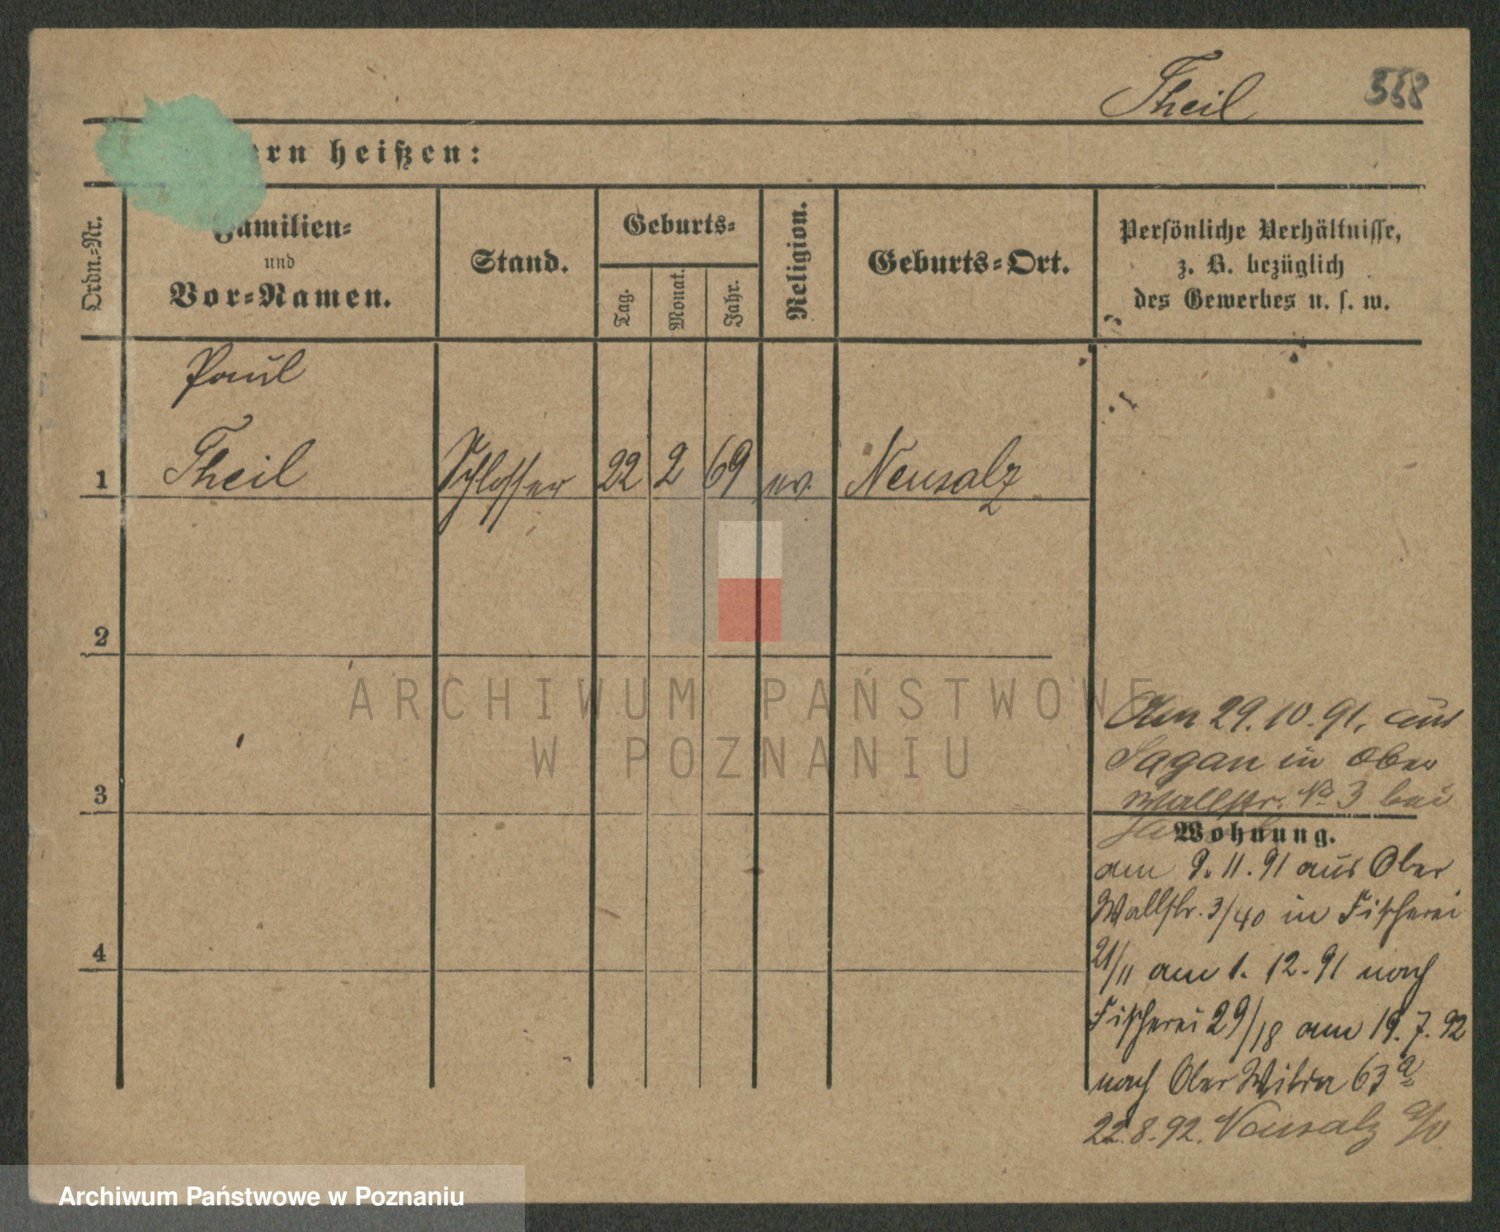 Theil
558
ern heißen:
Ordn.-Nr.
Familien-
und
Vor-Namen.
Stand.
Geburts-
Tag.
Monat.
Jahr.
Religion.
Geburts-Ort.
Persönliche Verhältnisse,
z. B. bezüglich
des Gewerbes u. s. w.
Paul
1 Theil Schlosser 22 2 69 ev. Neusalz
2
3
4
Am 29.10.91. aus
Sagan in Ober
Wallstr. No 3 bei
Wohnung.
am 9.11.91 aus Ober
Wallstr. 3/40 in Fischerei
21/11 am 1.12.91 nach
Fischerei 29/18 am 19.7.92
nach Ober Wilda 63a
22.8.92. Neusalz a/O
ARCHIWUM PAŃSTWOWE
W POZNANIU
Archiwum Państwowe w Poznaniu